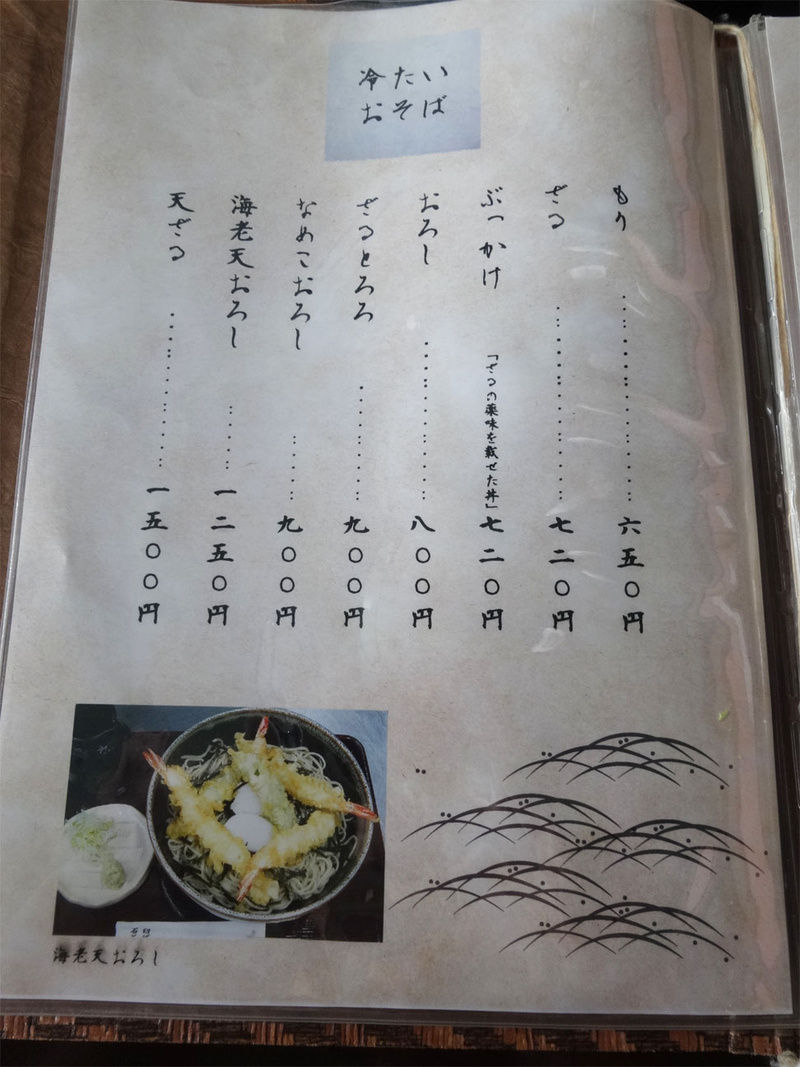 冷たい
おそば
もり……………………六五〇円
ざる…………………七二〇円
ぶっかけ「ざるの薬味を載せた丼」七二〇円
おろし………………八〇〇円
ざるとろろ…………九〇〇円
なめこおろし……九〇〇円
海老天おろし……一二五〇円
天ざる………………一五〇〇円
海老天おろし